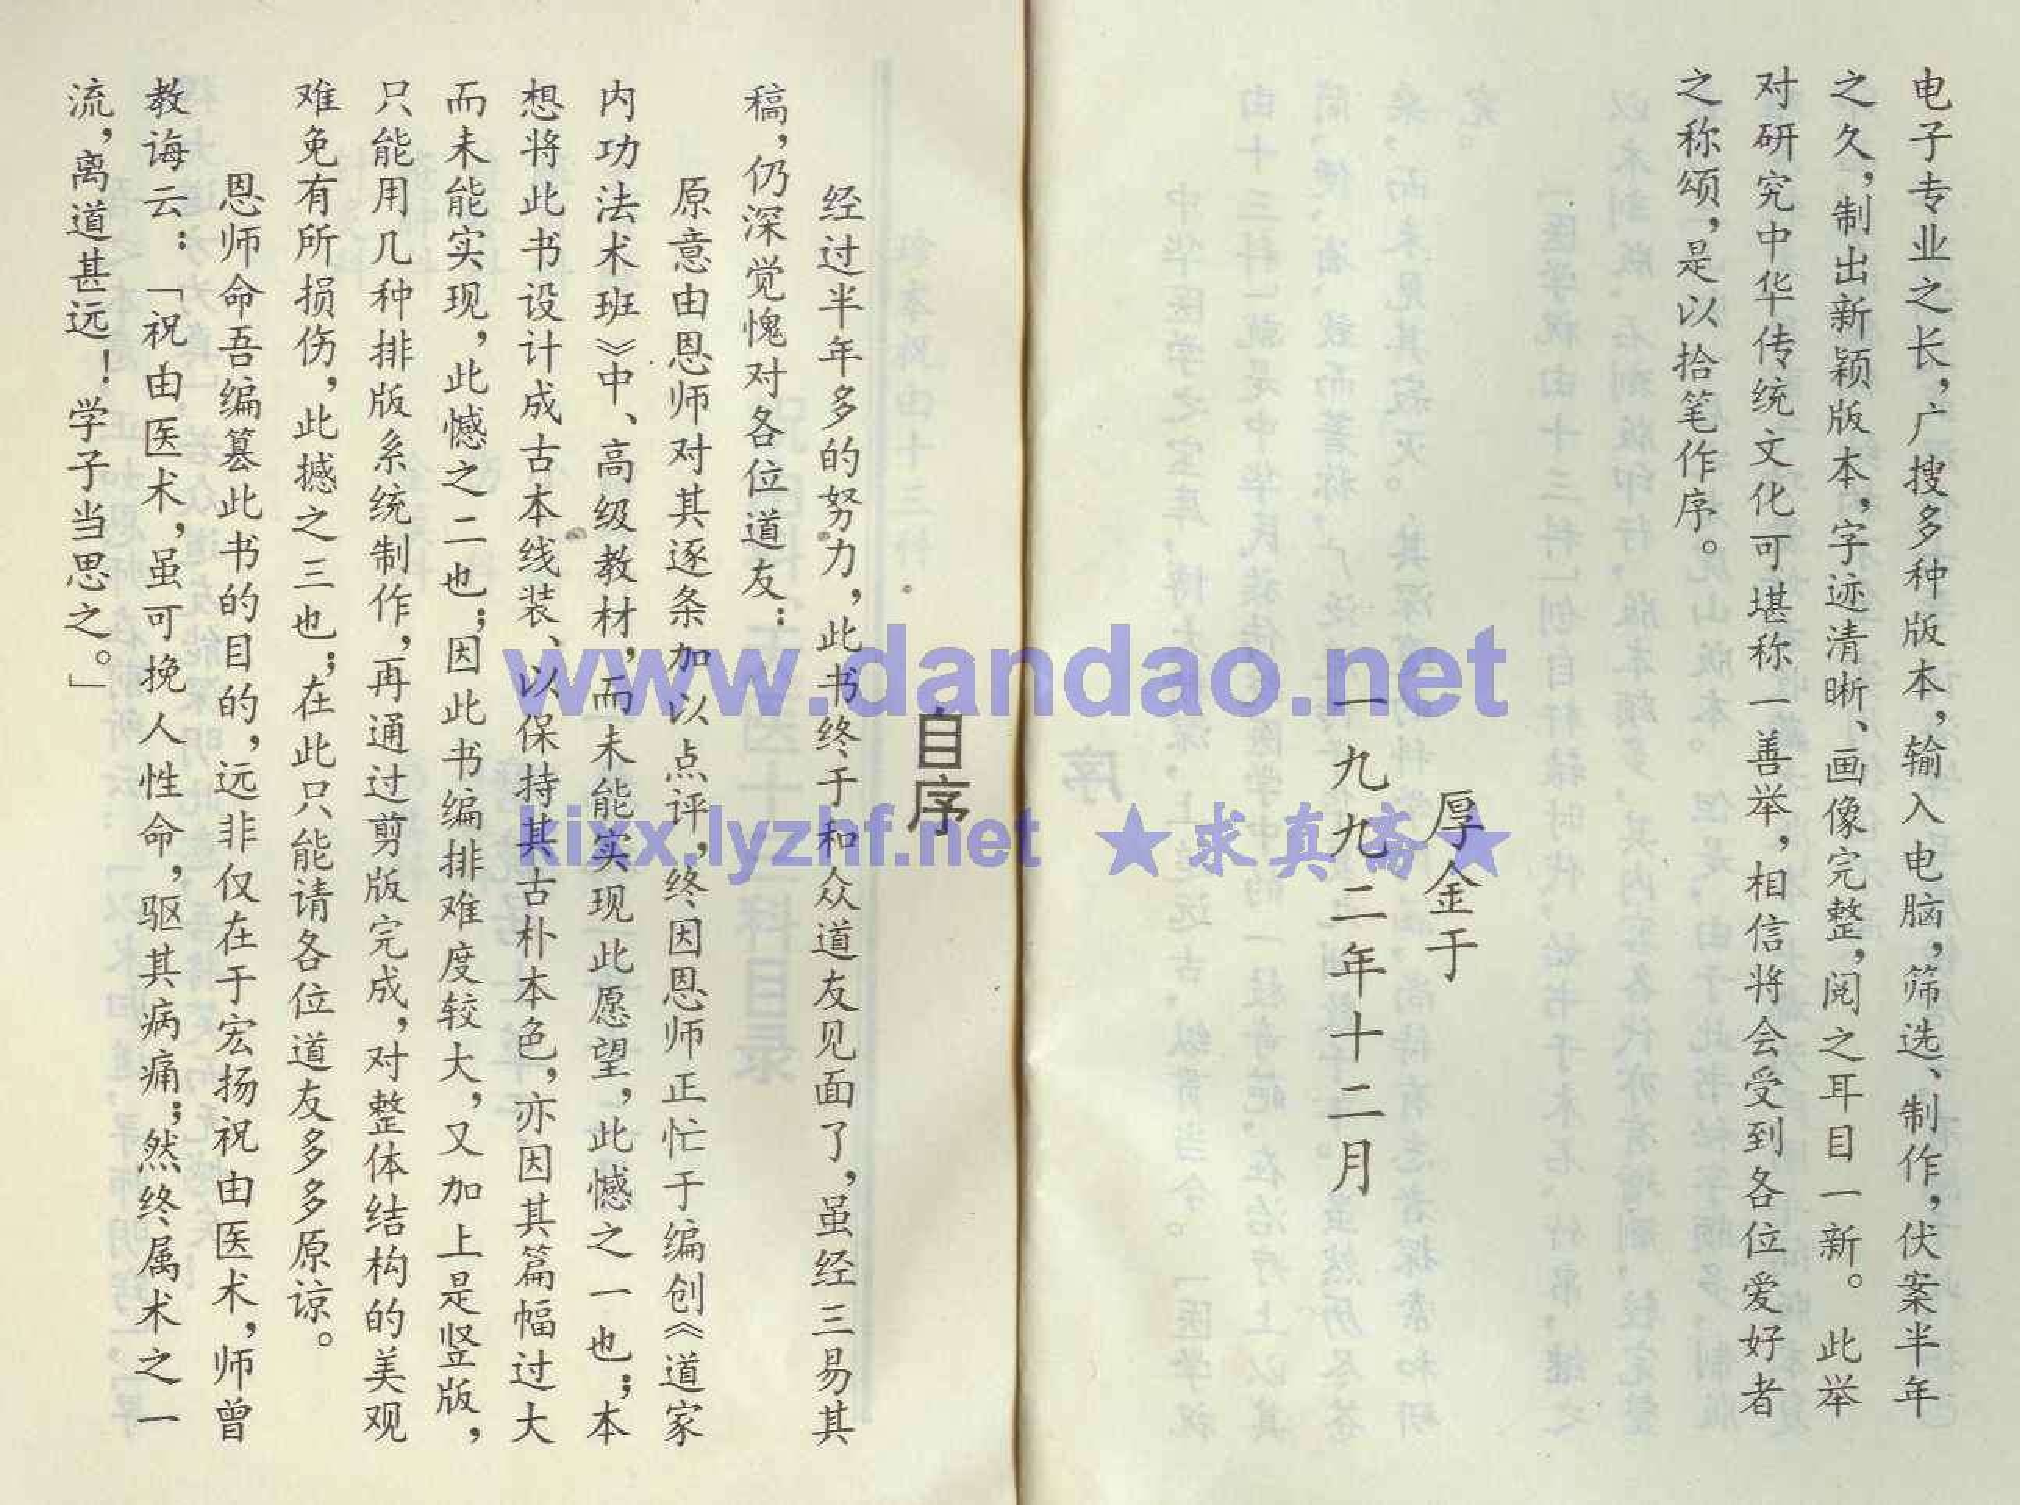 电子专业之长，广搜多种版本，输入电脑，筛选、制作，伏案半年
之久，制出新颖版本，字迹清晰、画像完整，阅之耳目一新。此举
对研究中华传统文化可堪称一善举，相信将会受到各位爱好者
之称颂，是以拾笔作序。
厚金于
一九九二年十二月
自序
经过半年多的努力，此书终于和众道友见面了，虽经三易其
稿，仍深觉愧对各位道友：
原意由恩师对其逐条加以点评，终因恩师正忙于编创《道家
内功法术班》中、高级教材，而未能实现此愿望，此憾之一也；本
想将此书设计成古本线装、以保持其古朴本色，亦因其篇幅过大
而未能实现，此憾之二也；因此书编排难度较大，又加上是竖版，
只能用几种排版系统制作，再通过剪版完成，对整体结构的美观
难免有所损伤，此撼之三也；在此只能请各位道友多多原谅。
恩师命吾编篡此书的目的，远非仅在于宏扬祝由医术，师曾
教诲云：「祝由医术，虽可挽人性命，驱其病痛；然终属术之一
流，离道甚远！学子当思之。」
www.dandao.net
kixx.lyzhf.net ★求真斋★